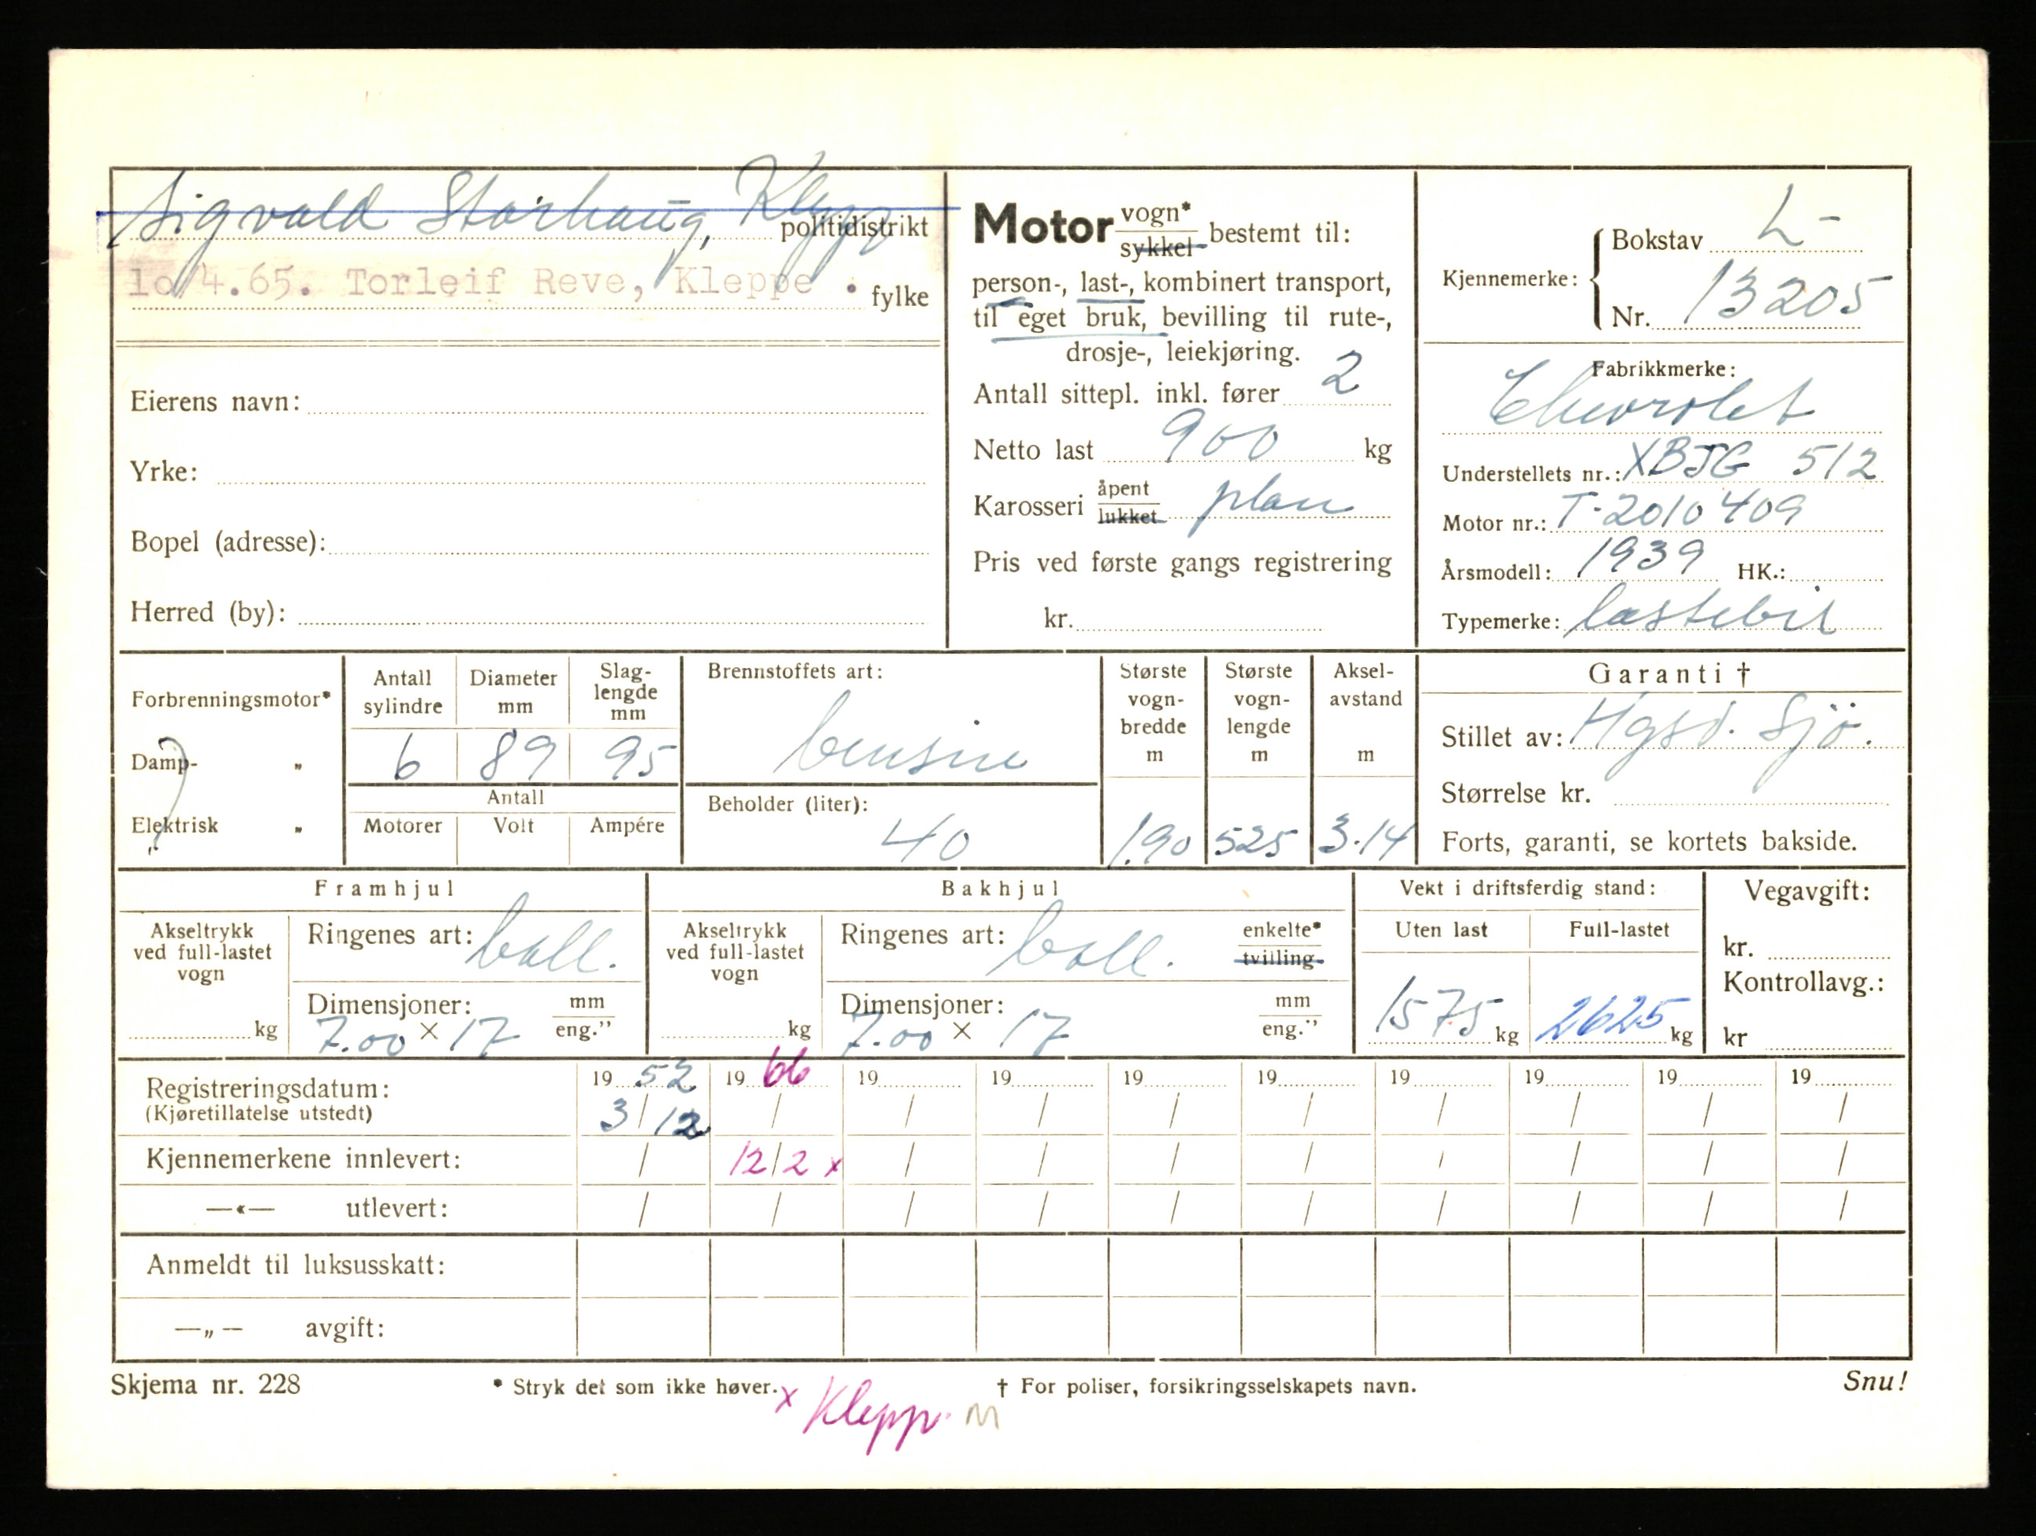 Sigvald Storhaug, Klepp politidistrikt
lo/4.65. Torleif Reve, Kleppe . fylke
Eierens navn:
Yrke:
Bopel (adresse):
Herred (by):
Motor vogn* sykkel bestemt til:
person-, last-, kombinert transport,
til eget bruk, bevilling til rute-,
drosje-, leiekjøring.
Antall sittepl. inkl. fører 2
Netto last 900 kg
Karosseri åpent lukket plan
Pris ved første gangs registrering
kr.
Kjennemerke: Bokstav L-
Nr. 13205
Fabrikkmerke:
Chevrolet
Understellets nr.: XBJG 512
Motor nr.: T-2010409
Årsmodell: 1939 HK.:
Typemerke: lastebil
Forbrenningsmotor*
Damp- „
Elektrisk „
Antall sylindre
6
Diameter mm
89
Slag-lengde mm
95
Antall
Motorer Volt Ampére
Brennstoffets art:
bensin
Beholder (liter):
40
Største vogn-bredde m
1.90
Største vogn-lengde m
525
Aksel-avstand m
3.14
Garanti †
Stillet av: Hgsd. Sjø.
Størrelse kr.
Forts, garanti, se kortets bakside.
Framhjul
Akseltrykk ved full-lastet vogn
kg
Ringenes art: ball.
Dimensjoner: mm
7.00 × 17 eng.”
Bakhjul
Akseltrykk ved full-lastet vogn
kg
Ringenes art: ball. enkelte* tvilling
Dimensjoner: mm
7.00 × 17 eng.”
Vekt i driftsferdig stand:
Uten last Full-lastet
1575 kg 2625 kg
Vegavgift:
kr.
Kontrollavg.:
kr
Registreringsdatum: 19 52 19 66 19 19 19 19 19 19 19 19
(Kjøretillatelse utstedt) 3/12 / / / / / / / / /
Kjennemerkene innlevert: / 12/2 x / / / / / / / /
—«— utlevert: / / / / / / / / / /
Anmeldt til luksusskatt:
—„— avgift:
Skjema nr. 228 * Stryk det som ikke høver. † For poliser, forsikringsselskapets navn. Snu!
x Klepp. M